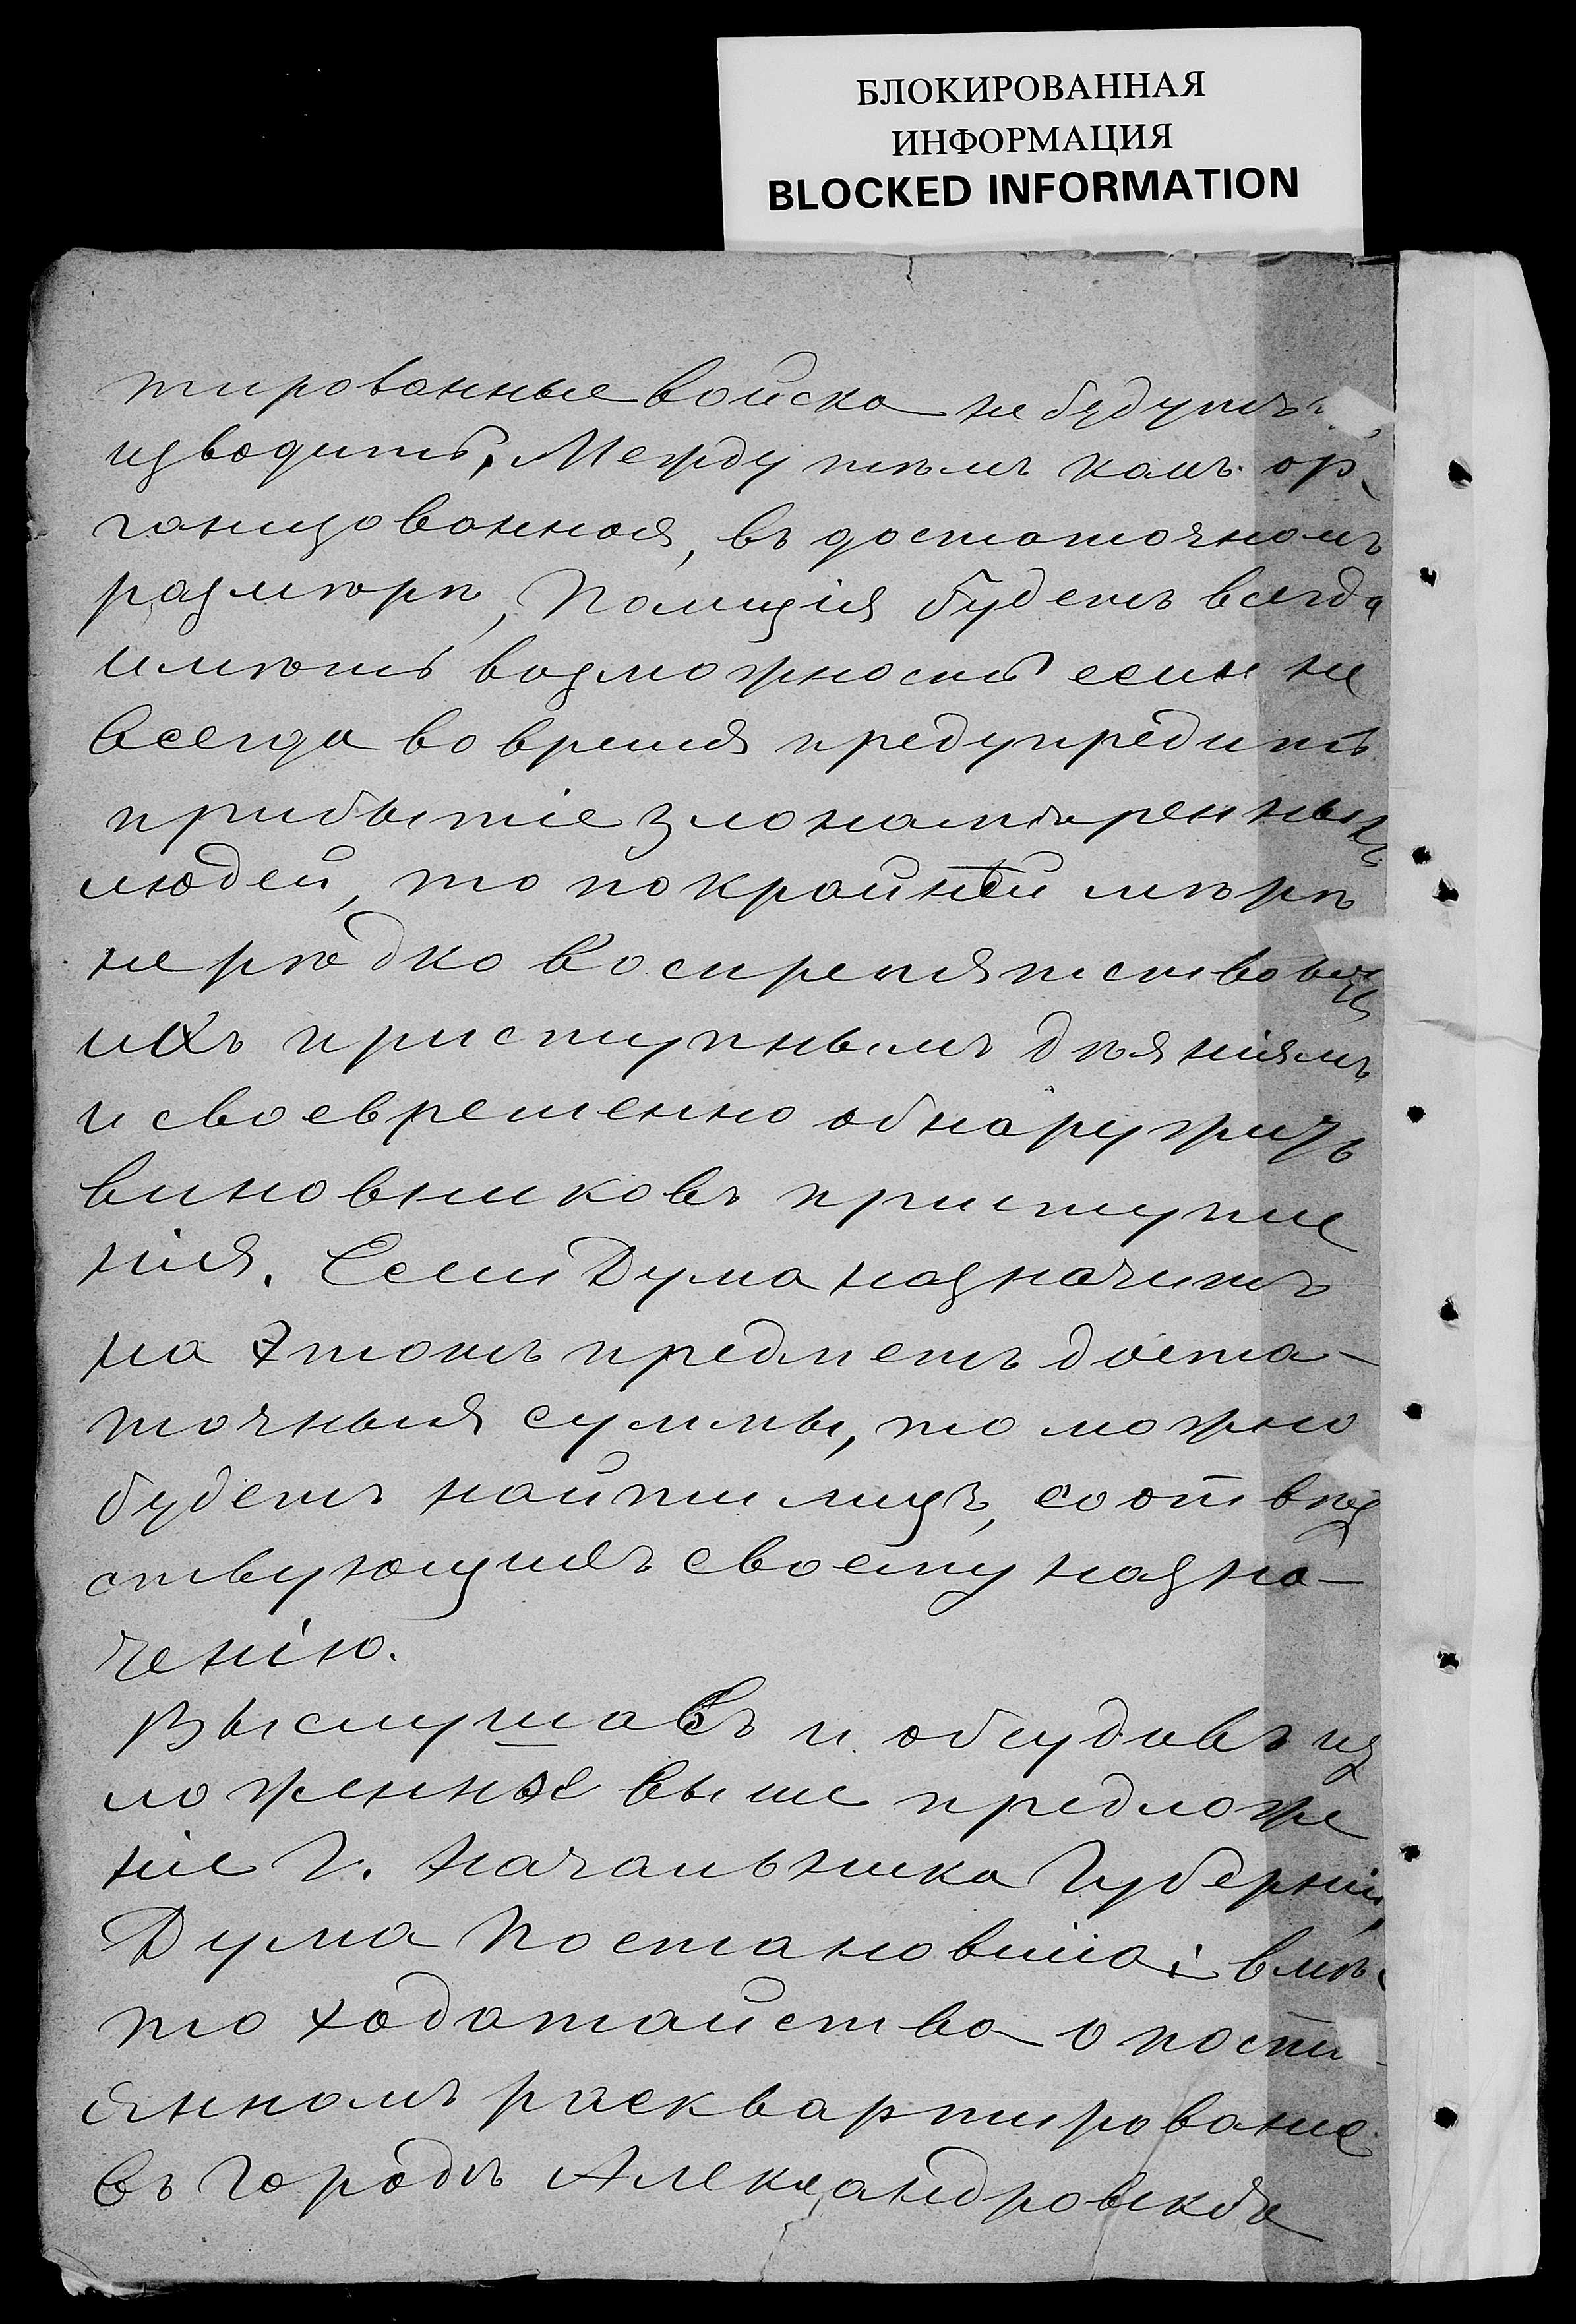 БЛОКИРОВАННАЯ
ИНФОРМАЦИЯ
BLOCKED INFORMATION
тированные войска не будутъ
изводить. Между тѣмъ какъ ор-
ганизованная, въ достаточномъ
размѣрѣ, Полиція будетъ всегда
имѣть возможность если не
всегда во время предупредить
прибытіе злонамѣренныхъ
людей, то по крайнѣй мѣрѣ
не рѣдко воспрепятствовать
ихъ приступнымъ дѣяніямъ
и своевременно обнаружить
виновниковъ приступле
нія. Если Дума назначитъ
на этотъ предметъ доста-
точныя суммы, то можно
будетъ найти лицъ, соотвѣт
ствующихъ своему назна-
ченію.
Выслушавъ и обсудивъ из
ложенное выше предложе
ніе Г. Начальника Губерніи,
Дума Постановила: вмѣс
то ходатайства о посто-
янномъ расквартированіе
въ городѣ Александровскѣ